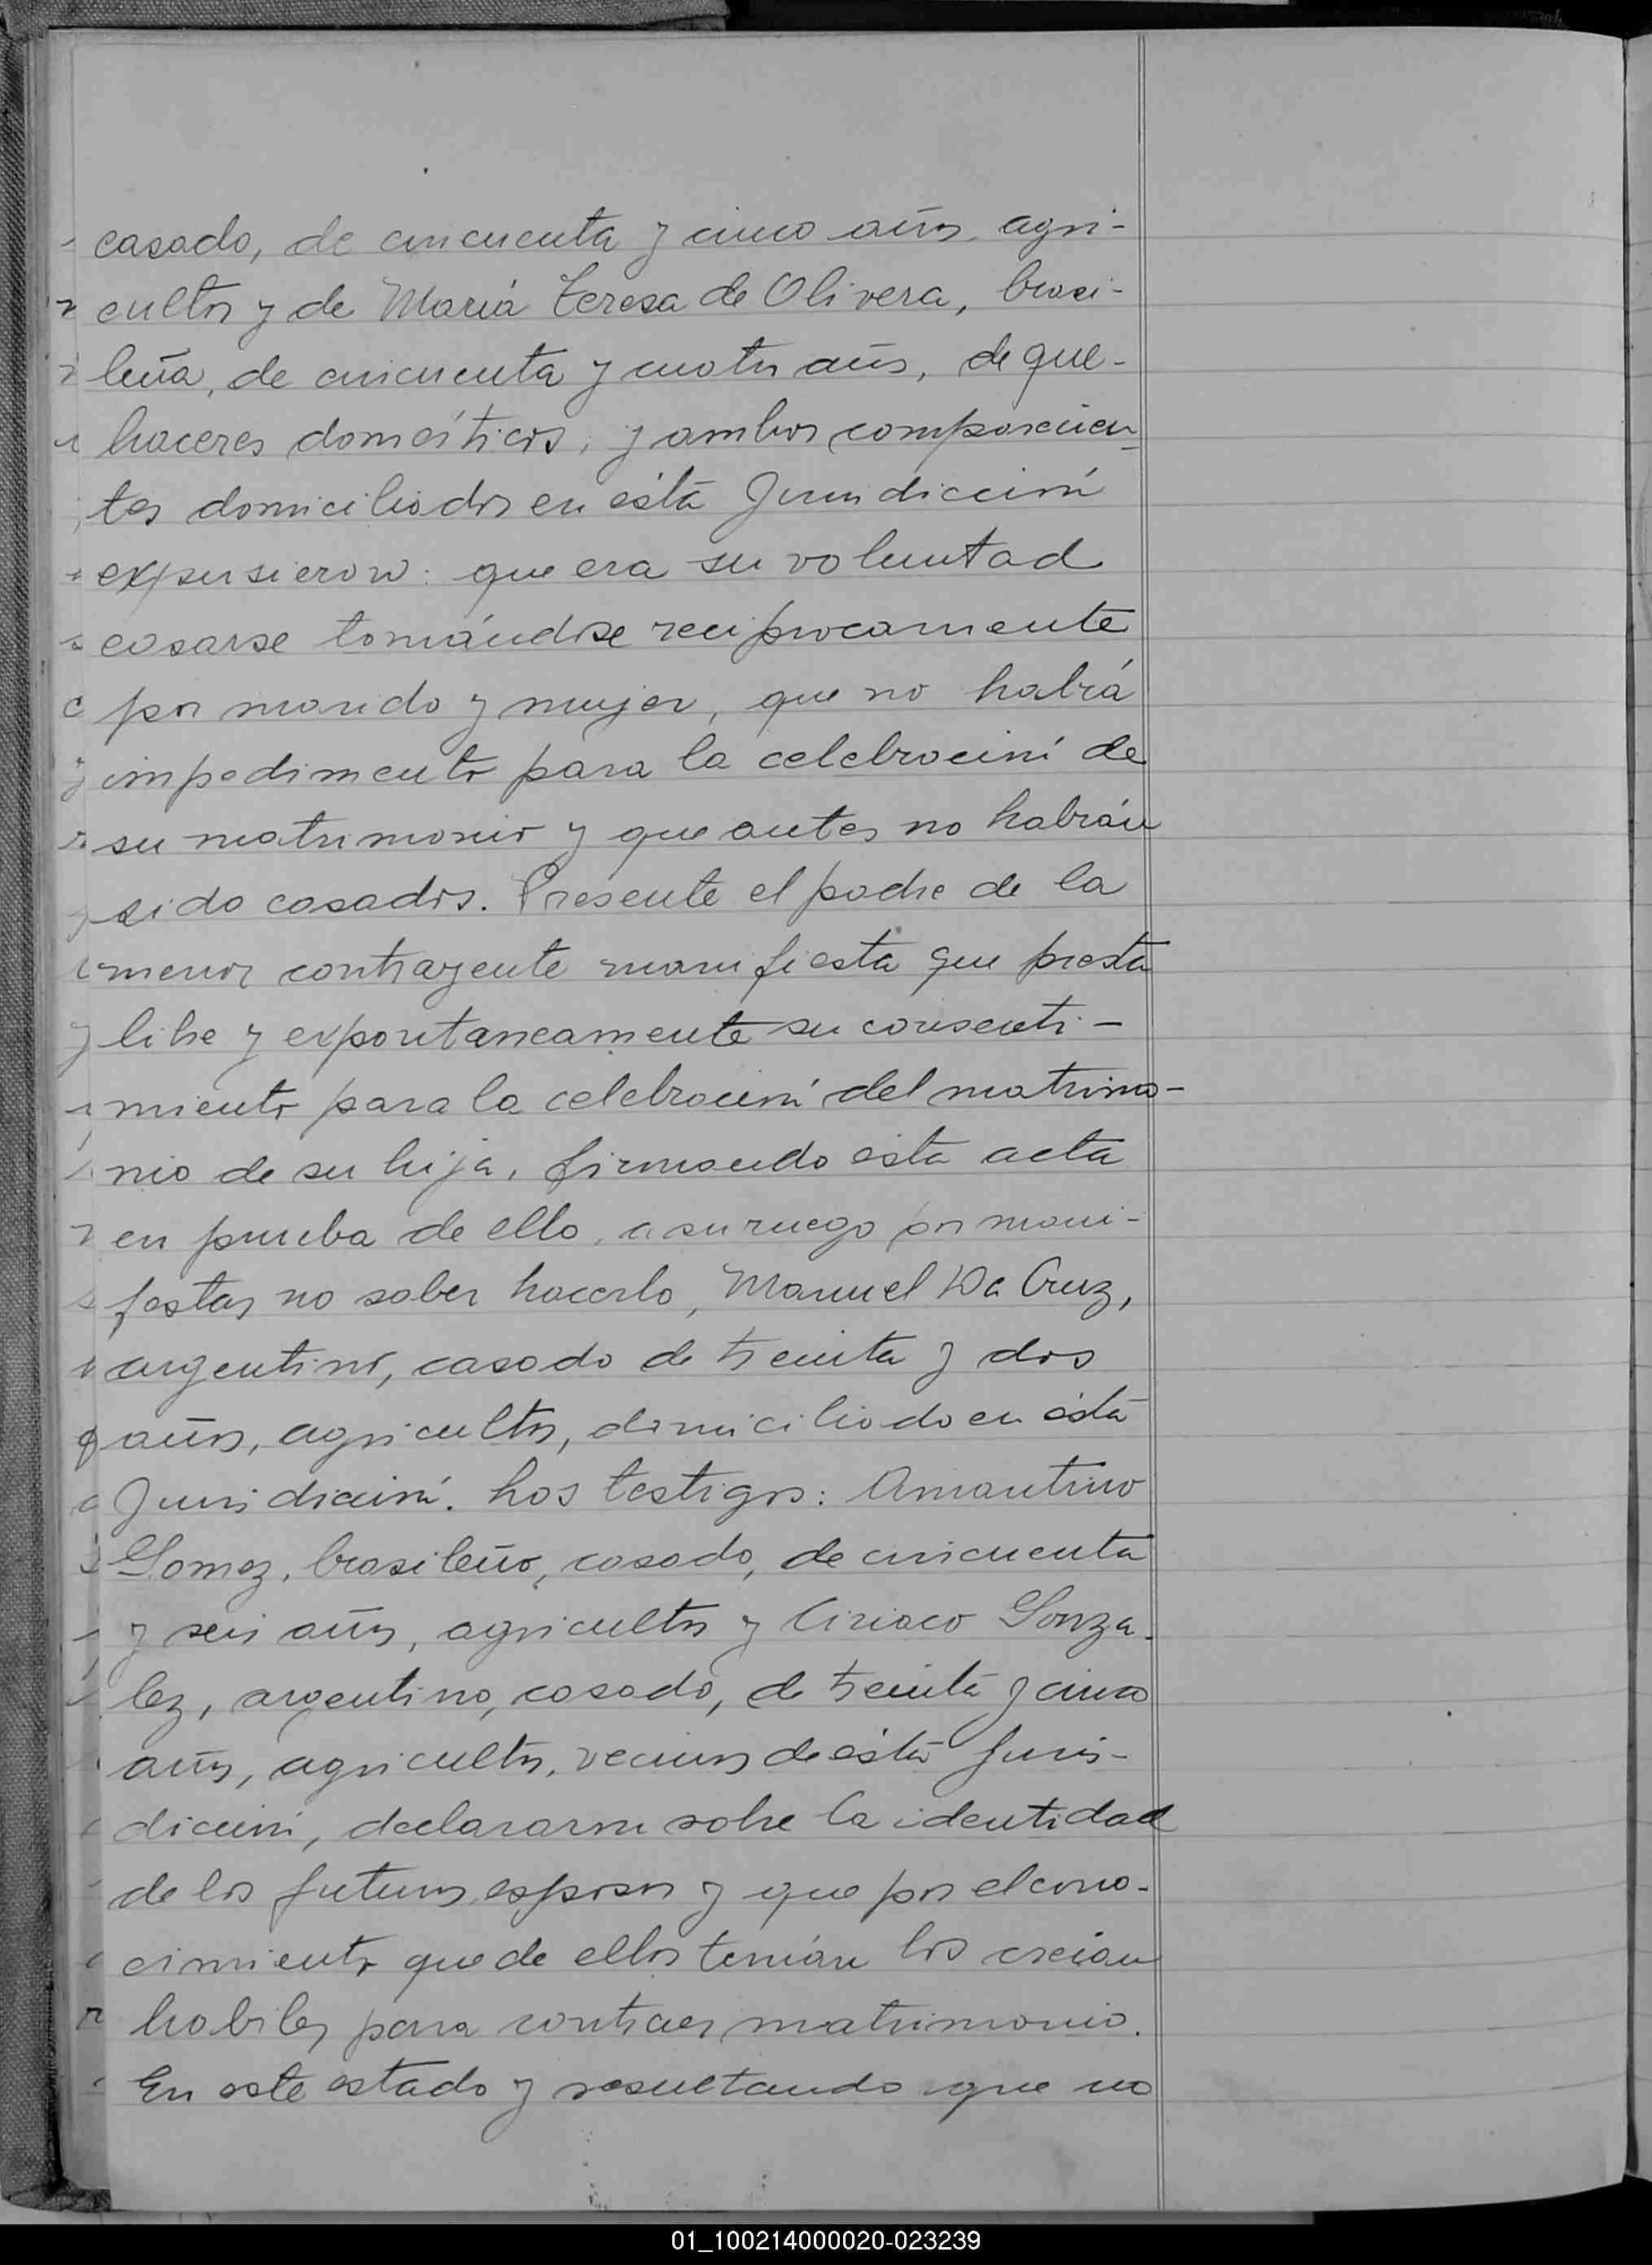 casado, de cincuenta y cinco años, agri-
cultor y de María Teresa de Olivera, brasi-
leña, de cincuenta y cuatro años, de que-
haceres domésticos; y ambos comparecien-
tes domiciliados en ésta Jurisdicción
expusieron: que era su voluntad
casarse tomándose recíprocamente
por marido y mujer, que no había
impedimento para la celebración de
su matrimonio y que antes no habían
sido casados. Presente el padre de la
menor contrayente manifiesta que presta
libre y expontaneamente su consenti-
miento para la celebración del matrimo-
nio de su hija, firmando esta acta
en prueba de ello, a su ruego por mani-
festar no saber hacerlo, Manuel Da Cruz,
argentino, casado de treinta y dos
años, agricultor, domiciliado en ésta
Jurisdicción. Los testigos: Amantino
Gomez, brasileño, casado, de cincuenta
y seis años, agricultor y Ciriaco Gonza-
lez, argentino, casado, de treinta y cinco
años, agricultor, vecinos de ésta Juris-
dicción, declararon sobre la identidad
de los futuros esposos y que por el cono-
cimiento que de ellos tenían los creían
habiles para contraer matrimonio.
En este estado y resultando que no
01_100214000020-023239